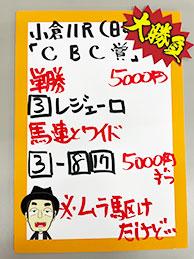 小倉11R(CBC賞)
「CBC賞」
大勝負
単勝 5000円
3 レジェーロ
馬連とワイド
3-8 17 5000円
ずつ
※ムラ駆け
だけど…